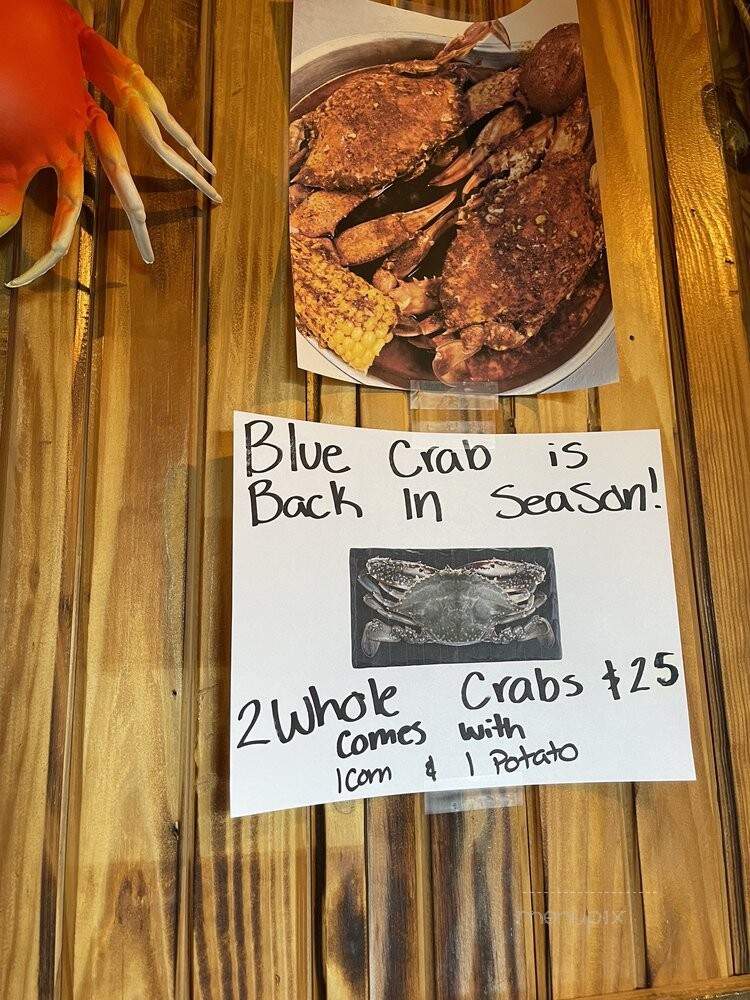 Blue Crab is
Back In Season!
2 Whole Crabs $25
comes with
1 Corn & 1 Potato
menupix